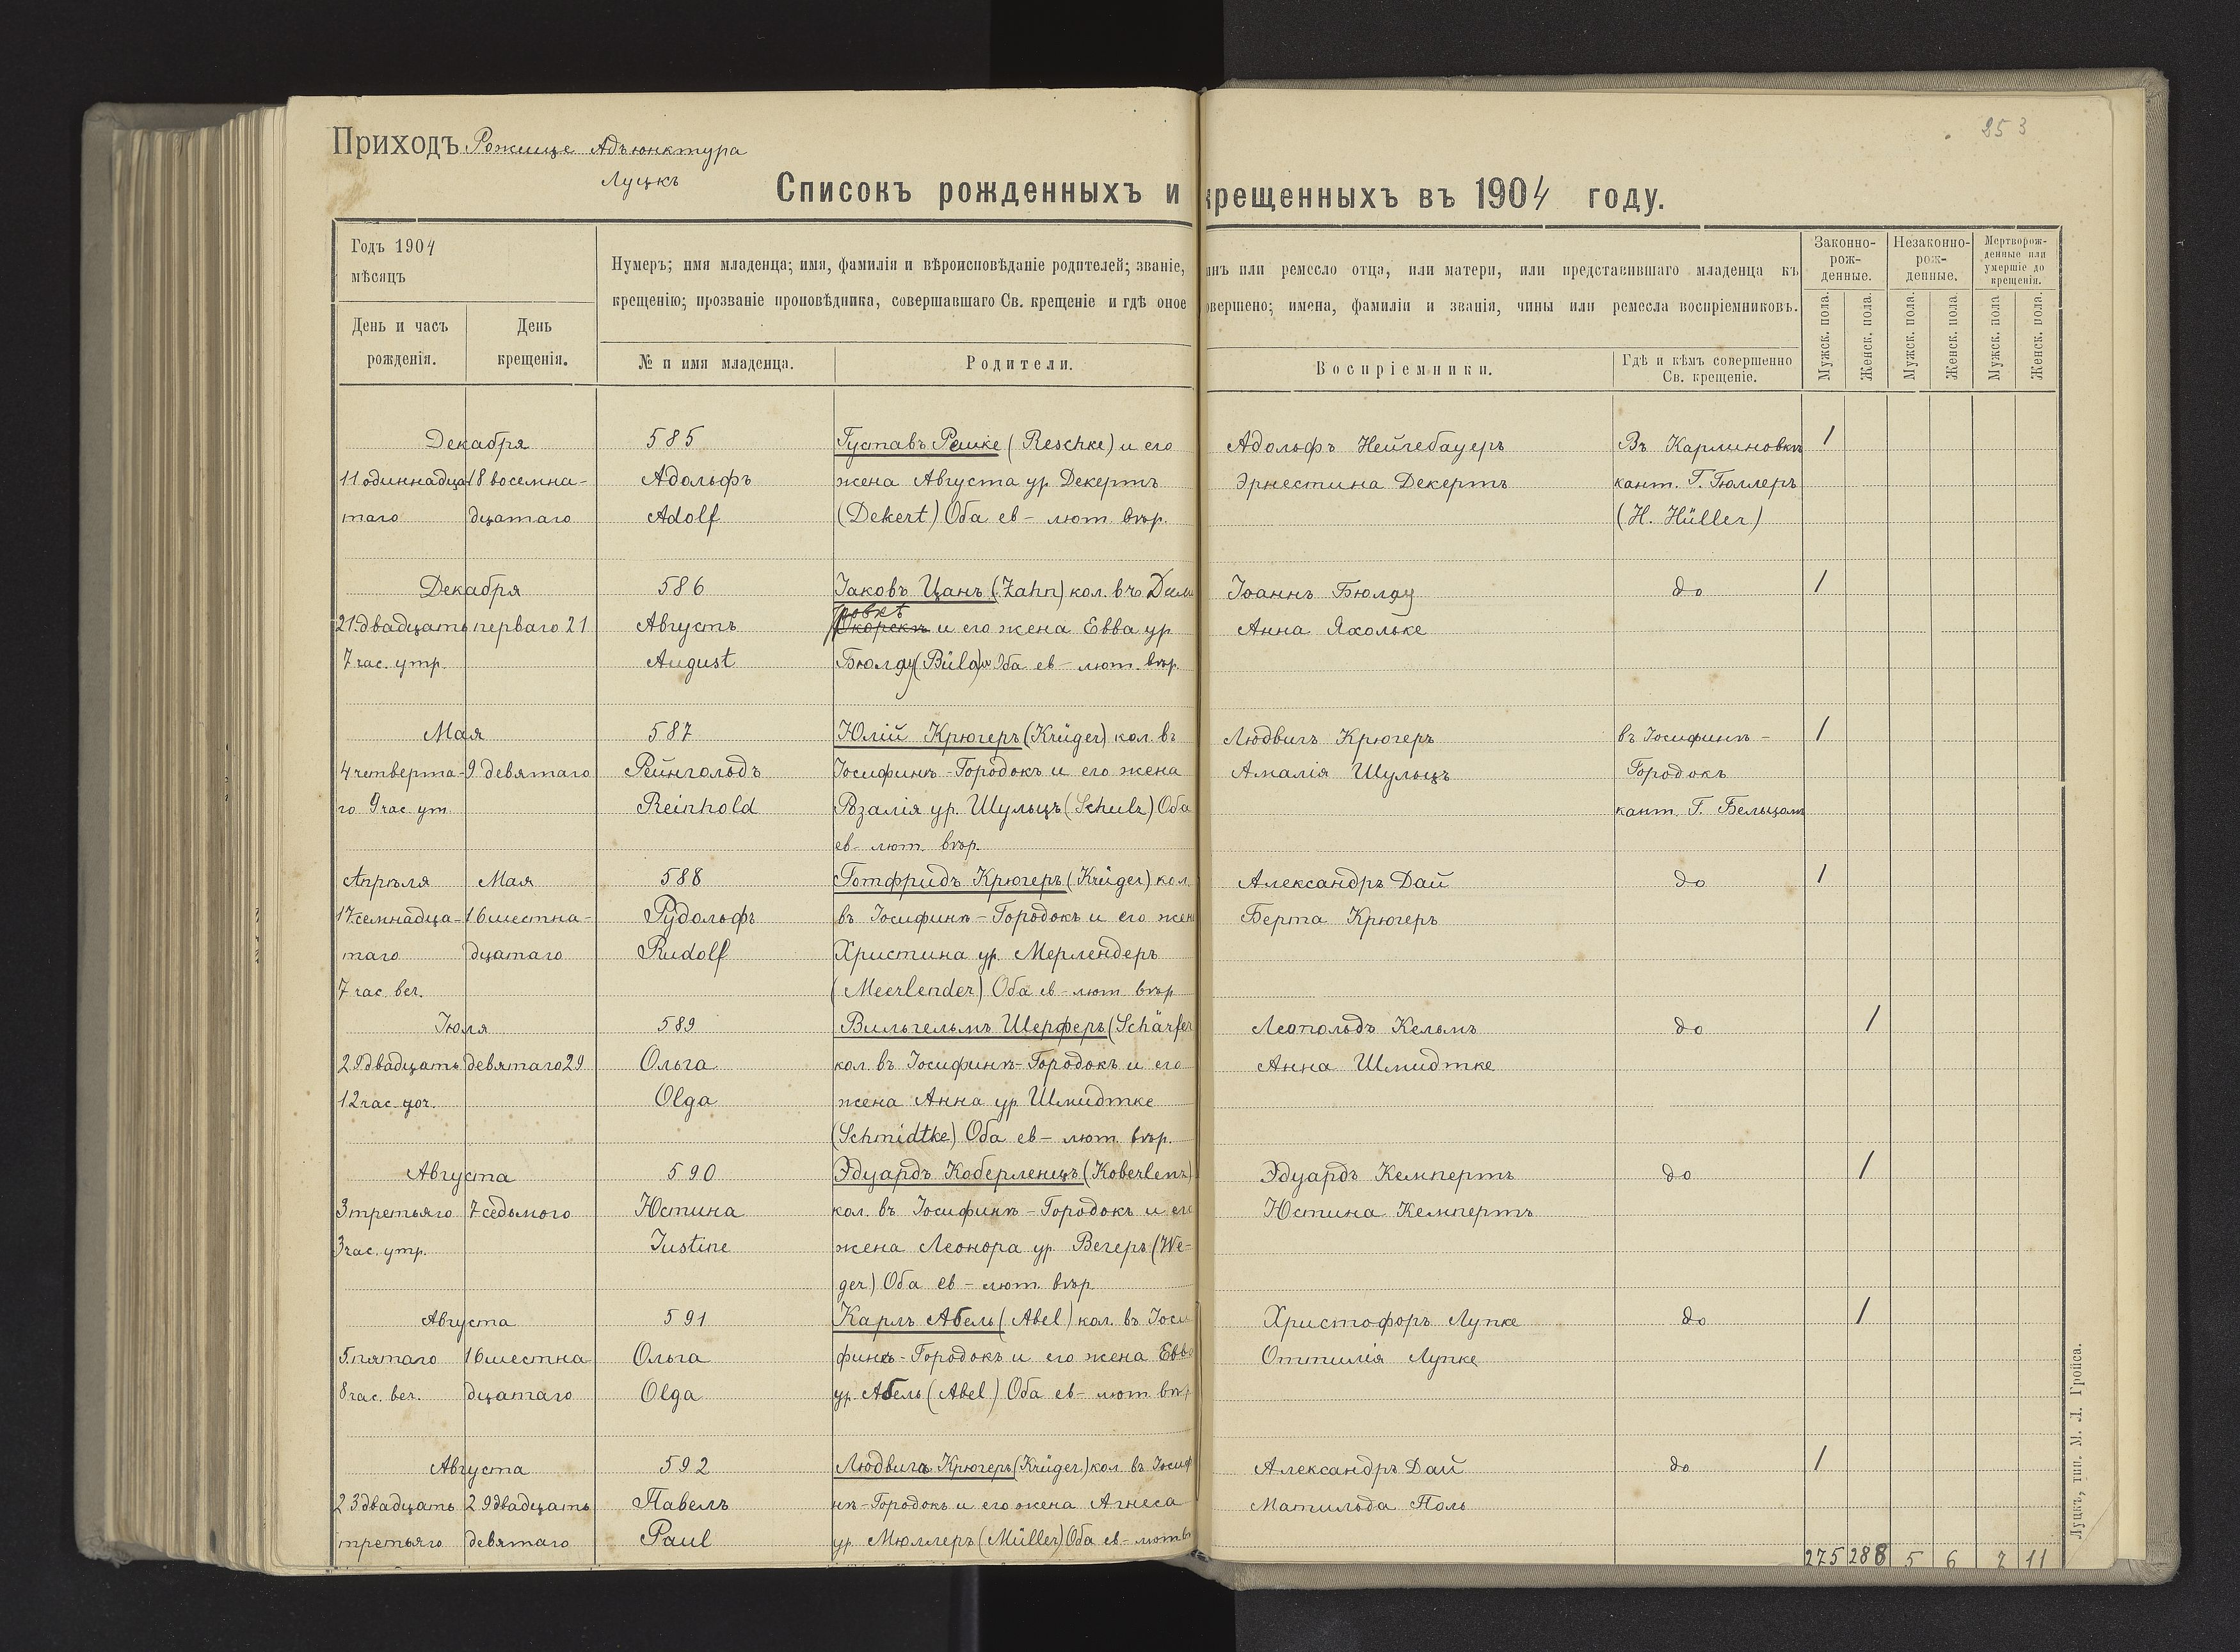 253
Приходъ Рожище Адъюнктура
Луцкъ
Списокъ рожденныхъ и крещенныхъ въ 1904 году.
Годъ 1904
мѣсяцъ
День и часъ рожденія.
День крещенія.
Нумеръ; имя младенца; имя, фамилія и вѣроисповѣданіе родителей; званіе, чинъ или ремесло отца, или матери, или представившаго младенца къ
крещенію; прозваніе проповѣдника, совершавшаго Св. крещеніе и гдѣ оное совершено; имена, фамиліи и званія, чины или ремесла воспріемниковъ.
№ и имя младенца.
Родители.
Воспріемники.
Гдѣ и кѣмъ совершенно Св. крещеніе.
Законно-рож-денные.
Незаконно-рож-денные.
Мертворож-денные или умершіе до крещенія.
Мужск. пола. Женск. пола. Мужск. пола. Женск. пола. Мужск. пола Женск. пола.
Декабря 585 Густавъ Решке (Reschke) и его Адольфъ Нейгебауеръ Въ Карлиновкѣ 1
11 одиннадца- 18 восемна- Адольфъ жена Августа ур. Декертъ Эрнестина Декертъ кант. Г. Гюллеръ
таго дцатаго Adolf (Dekert) Оба ев-лют. вѣр. (H. Hüller)
Декабря 586 Іаковъ Цанъ (Zahn) кол. въ Іоаннъ Бюлау до 1
ровкѣ
21. двадцать перваго 21 Августъ и его жена Евва ур. Анна Яхольке
7 час. утр. August Бюлау (Bülow) Оба ев-лют. вѣр.
Мая 587 Юлій Крюгеръ (Krüger) кол. въ Людвигъ Крюгеръ въ Іосифинъ- 1
4 четверта- 9 девятаго Рейнгольдъ Іосифинъ-Городокъ и его жена Амалія Шульцъ Городокъ
го 9 час. ут. Reinhold Розалія ур. Шульцъ (Schulz) Оба кант. Г. Бельцомъ
ев-лют. вѣр.
Апрѣля Мая 588 Готфридъ Крюгеръ (Krüger) кол. Александръ Дай до 1
17. семнадца- 16 шестна- Рудольфъ въ Іосифинъ-Городокъ и его жена Берта Крюгеръ
таго дцатаго Rudolf Христина ур. Мерлендеръ
7 час. веч. (Meerlender) Оба ев-лют. вѣр
Іюля 589 Вильгельмъ Шерферъ (Schärfer Леопольдъ Кельмъ до 1
29 двадцать девятаго 29 Ольга кол. въ Іосифинъ-Городокъ и его Анна Шмидтке
12 час. ноч. Olga жена Анна ур. Шмидтке
(Schmidtke) Оба ев-лют. вѣр.
Августа 590 Эдуардъ Коберленцъ (Koberlenz) Эдуардъ Кемпертъ до 1
3 третьяго 7 седьмого Юстина кол. въ Іосифинъ-Городокъ и его Юстина Кемпертъ
3 час. утр. Iustine жена Леонора ур. Вегеръ (We-
ger) Оба ев-лют. вѣр
Августа 591 Карлъ Абель (Abel) кол. въ Іоси- Христофоръ Лупке до 1
5. пятаго 16 шестна Ольга финъ-Городокъ и его жена Евва Оттилія Лупке
8 час. веч. дцатаго Olga ур. Абель (Abel) Оба ев-лют. вѣр
Августа 592 Людвигъ Крюгеръ (Krüger) кол. въ Іосиф Александръ Дай до 1
23. двадцать 29 двадцать Павелъ нъ-Городокъ и его жена Агнеса Матильда Поль
третьяго девятаго Paul ур. Мюллеръ (Müller) Оба ев-лют в
275 288 5 6 7 11
Луцкъ, тип. М. Л. Гройса.